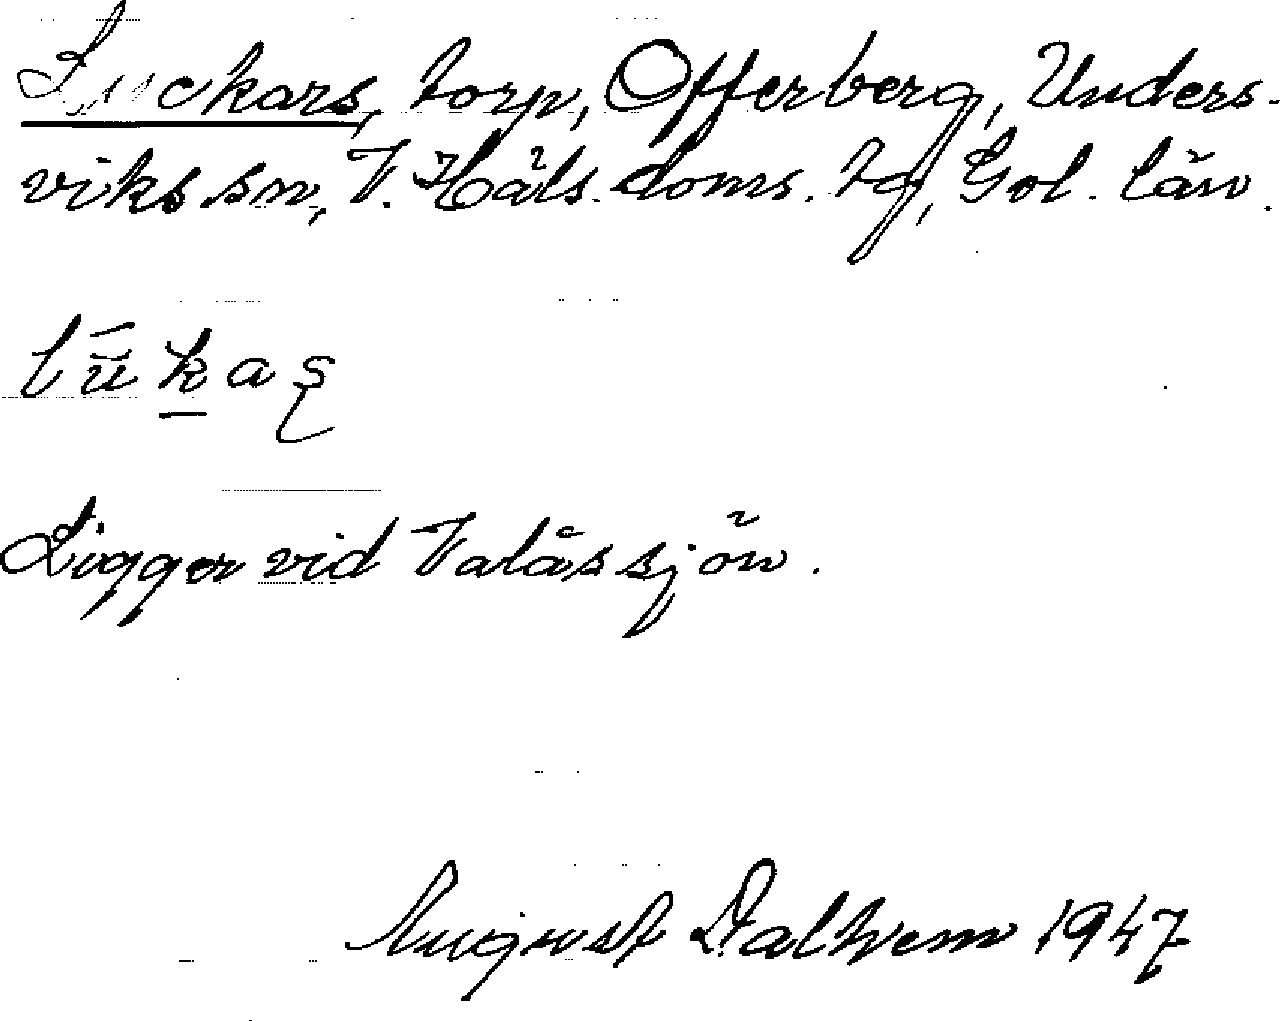 Luckars, torp, Offerberg, Unders-
viks sn, V. Häls. doms. tg, Gol. län.
lūkas̨
Ligger vid Valåssjön.
August Dalhem 1947